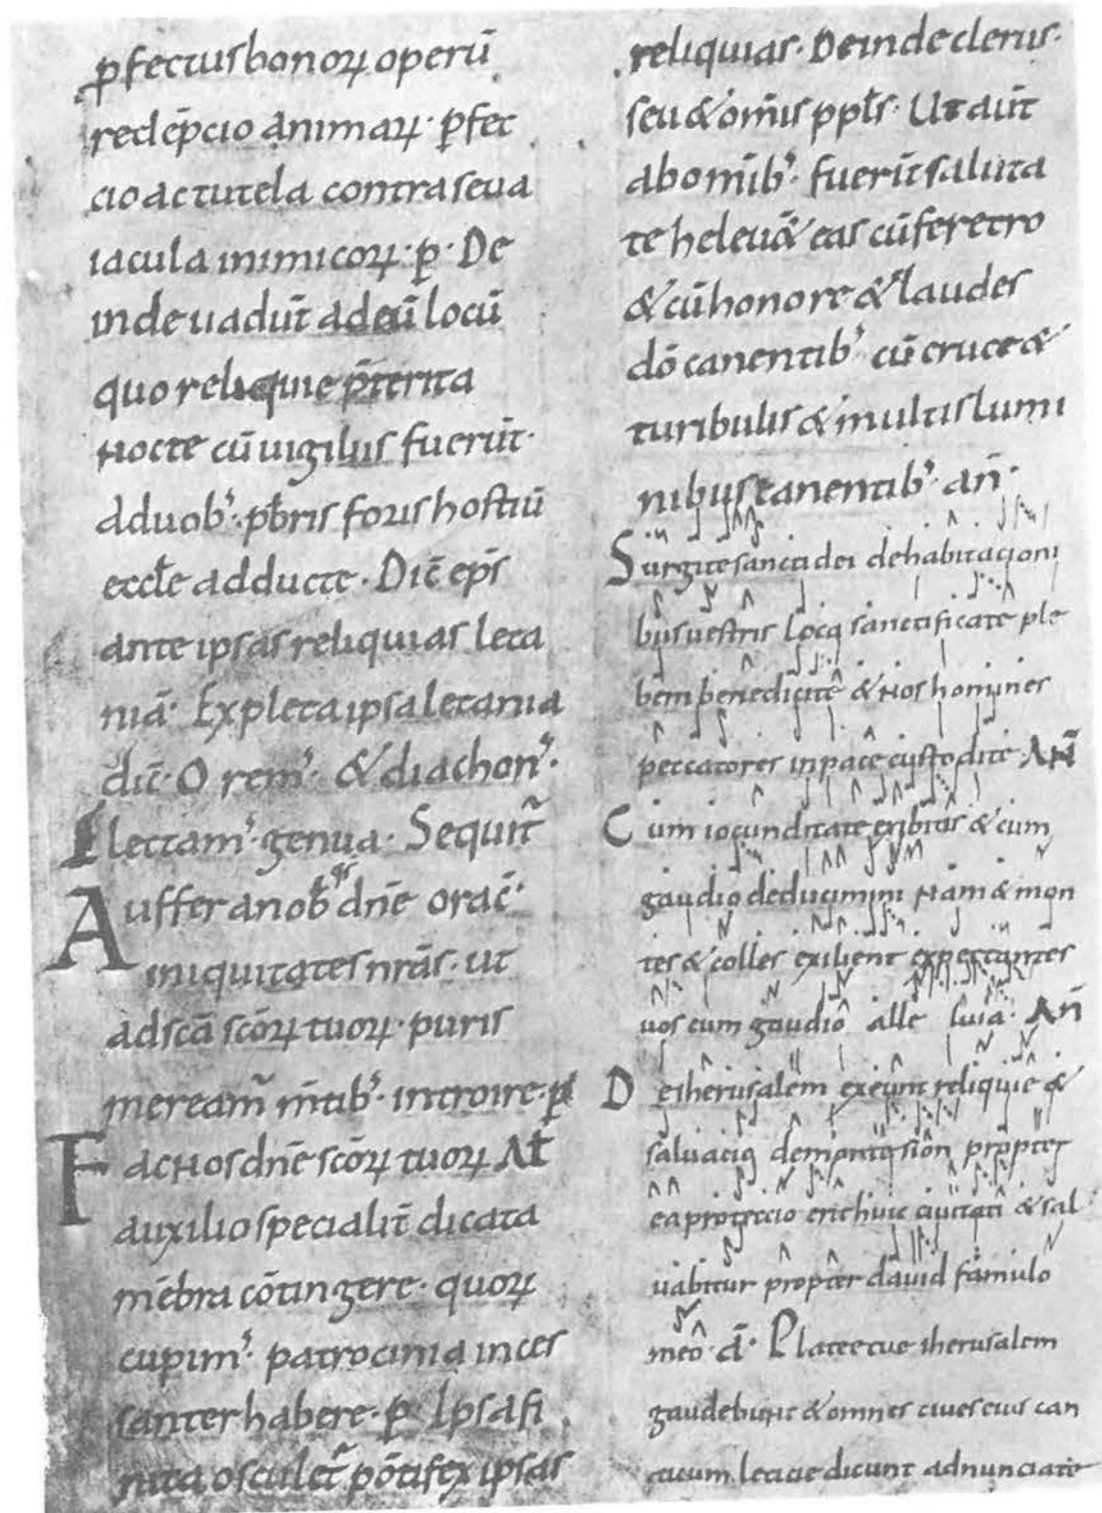 ꝑfectus bonoꝝ operū
redēpcio animaꝝ · ꝑfec
cio ac tutela contra seua
iacula inimicoꝝ · ꝑ · De
inde uadūt ad eū locū
quo reliquie p̄terita
nocte cū uigiliis fuerūt ·
a duobꝰ · pb̄ris foris hostiū
eccl̄e adducte · Dic̄ ep̄s
ante ipsas reliquias leta
niā · Expleta ipsa letania
dic̄ · Oremꝰ · & diachonꝰ ·
Flectamꝰ · genua · Sequit᷑
Auffer a nob̄ qs̄ dn̄e orac̄ ·
iniquitates nr̄as · ut
ad sc̄a sc̄oꝝ tuoꝝ · puris
mereām m̄tibꝰ · introire · ꝑ
Fac nos dn̄e sc̄oꝝ tuoꝝ Al̄
auxilio specialit̄ dicata
mēbra cōtingere · quoꝝ
cupimꝰ · patrocinia inces
santer habere · ꝑ · Ipsa fi
nita osculet᷑ pōtifex ipsas
reliquias · Deinde clerus ·
seu & om̄is ppl̄s · Ut aūt
ab om̄ibꝰ · fuerīt saluta
te heleuōn& eas cū feretro
& cū honore & laudes
dō canentibꝰ cū cruce &
turibulis & multis lumi
nibus canentibꝰ · an̄ ·
Surgite sancti dei de habitacioni
bus uestris loca sanctificate ple
bem benedicite & nos homines
peccatores in pace custodite · AN̄
Cum iocunditate exibitis & cum
gaudio deducimini nam & mon
tes & colles exilient expectantes
uos cum gaudio alle luia · AN̄
De iherusalem exeunt reliquie &
saluacio de monte sion propter
ea proteccio erit huic ciuitati & sal
uabitur propter dauid famulo
meo · a̅ · Platee tue iherusalem
gaudebunt & omnes ciues eius can
ticum leticie dicunt adnunciate